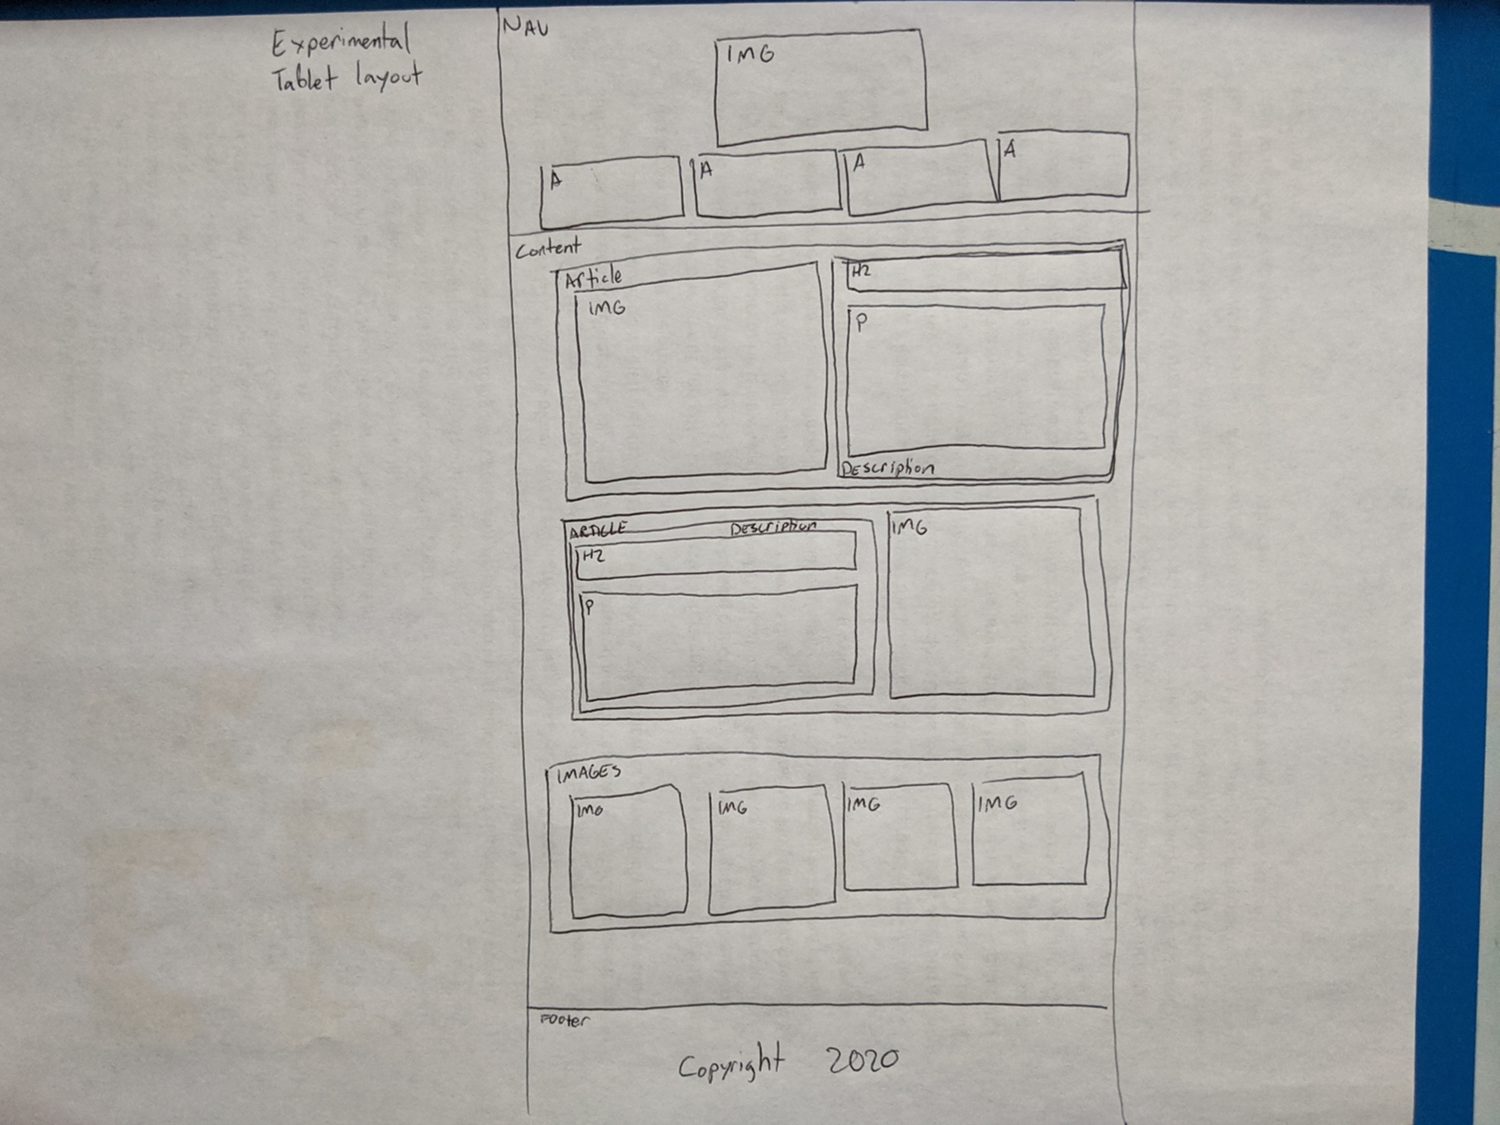 Experimental
Tablet layout
NAV
IMG
A
A
A
A
Content
Article
IMG
H2
P
Description
ARTICLE
Description
H2
P
IMG
IMAGES
IMG
IMG
IMG
IMG
Footer
Copyright 2020